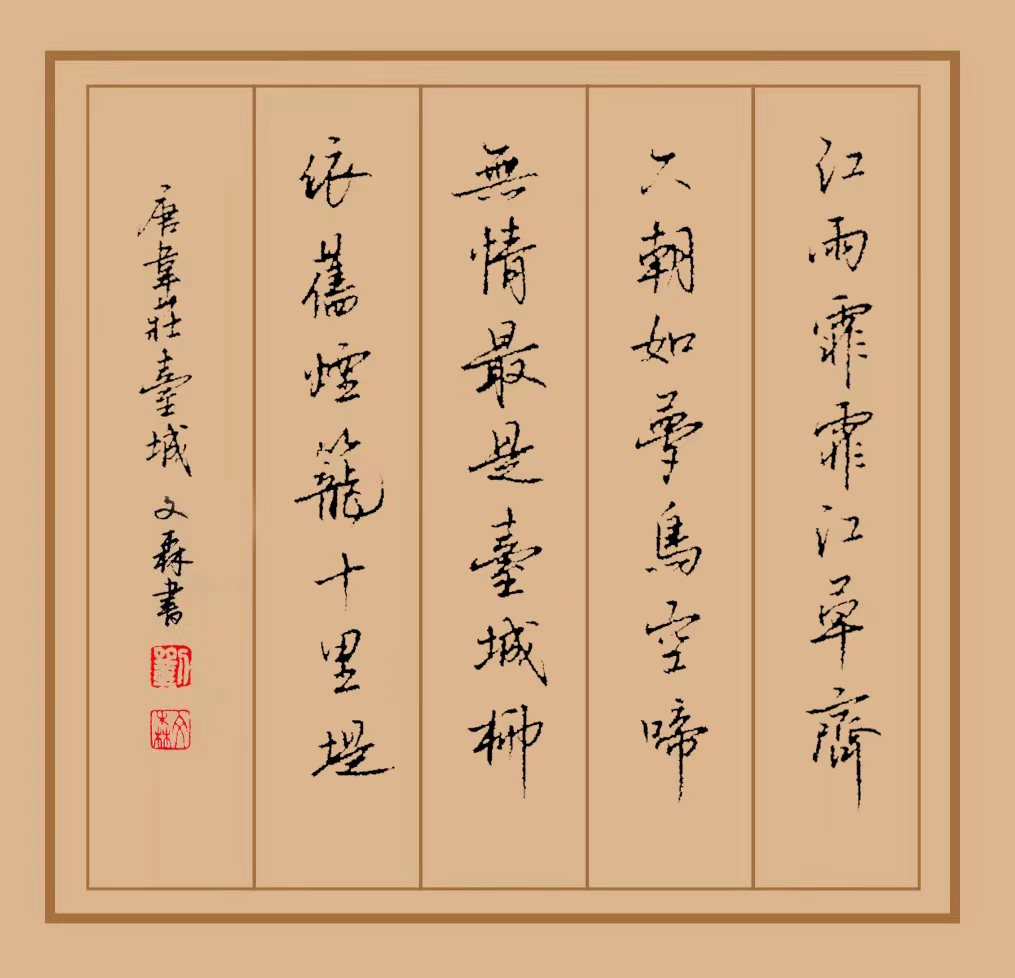 江雨霏霏江草齊
六朝如夢鳥空啼
無情最是臺城柳
依舊煙籠十里堤
唐韋莊臺城 文霖書
劉
文霖